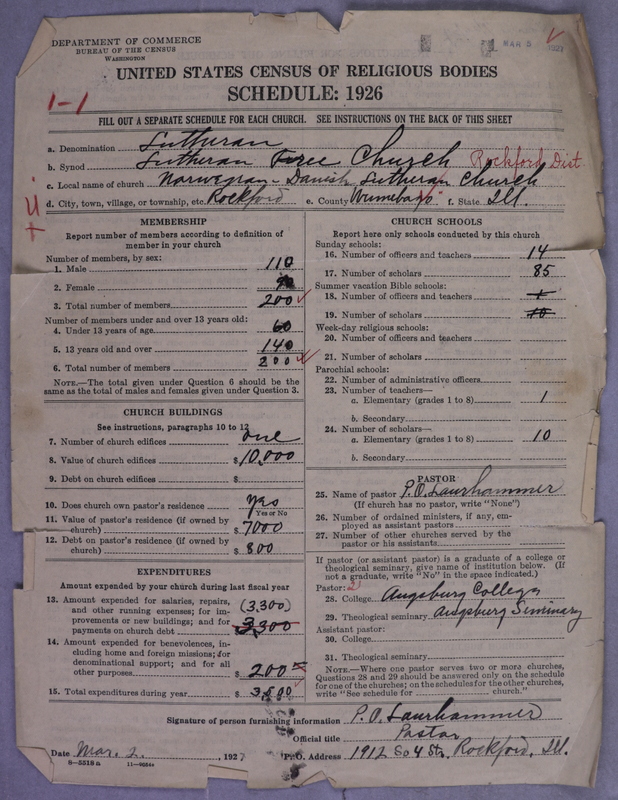 DEPARTMENT OF COMMERCE
BUREAU OF THE CENSUS
WASHINGTON
MAR 5 1927
UNITED STATES CENSUS OF RELIGIOUS BODIES
SCHEDULE: 1926
1-1
FILL OUT A SEPARATE SCHEDULE FOR EACH CHURCH. SEE INSTRUCTIONS ON THE BACK OF THIS SHEET
a. Denomination Lutheran
b. Synod Lutheran Free Church Rockford Dist
c. Local name of church Norwegian-Danish Lutheran Church
d. City, town, village, or township, etc. Rockford e. County Winnebago f. State Ill.
MEMBERSHIP
Report number of members according to definition of
member in your church
Number of members, by sex:
1. Male 110
2. Female 90
3. Total number of members 200
Number of members under and over 13 years old:
4. Under 13 years of age 60
5. 13 years old and over 140
6. Total number of members 200
NOTE.—The total given under Question 6 should be
same as the total of males and females given under Question 3.
CHURCH BUILDINGS
See instructions, paragraphs 10 to 12
7. Number of church edifices one
8. Value of church edifices $10,000
9. Debt on church edifices $
10. Does church own pastor's residence yes
Yes or No
11. Value of pastor's residence (if owned by
church) $7000
12. Debt on pastor's residence (if owned by
church) $800
EXPENDITURES
Amount expended by your church during last fiscal year
13. Amount expended for salaries, repairs,
and other running expenses; for im-
provements or new buildings; and for
payments on church debt (3,300)
$3,300
14. Amount expended for benevolences, in-
cluding home and foreign missions; for
denominational support; and for all
other purposes $200
15. Total expenditures during year $3500
CHURCH SCHOOLS
Report here only schools conducted by this church
Sunday schools:
16. Number of officers and teachers 14
17. Number of scholars 85
Summer vacation Bible schools:
18. Number of officers and teachers 1
19. Number of scholars 10
Week-day religious schools:
20. Number of officers and teachers
21. Number of scholars
Parochial schools:
22. Number of administrative officers
23. Number of teachers—
a. Elementary (grades 1 to 8) 1
b. Secondary
24. Number of scholars—
a. Elementary (grades 1 to 8) 10
b. Secondary
PASTOR
25. Name of pastor P.O. Laurhammer
(If church has no pastor, write "None")
26. Number of ordained ministers, if any, em-
ployed as assistant pastors
27. Number of other churches served by the
pastor or his assistants
If pastor (or assistant pastor) is a graduate of a college or
theological seminary, give name of institution below. (If
not a graduate, write "No" in the space indicated.)
Pastor: 2
28. College Augsburg College
29. Theological seminary Augsburg Seminary
Assistant pastor:
30. College
31. Theological seminary
NOTE.—Where one pastor serves two or more churches,
Questions 28 and 29 should be answered only on the schedule
for one of the churches; on the schedules for the other churches,
write "See schedule for church."
Signature of person furnishing information P.O. Laurhammer
Official title Pastor
Date Mar. 2, 1927 P.O. Address 1912 So 4 Str. Rockford, Ill.
8—5518a 11—9054